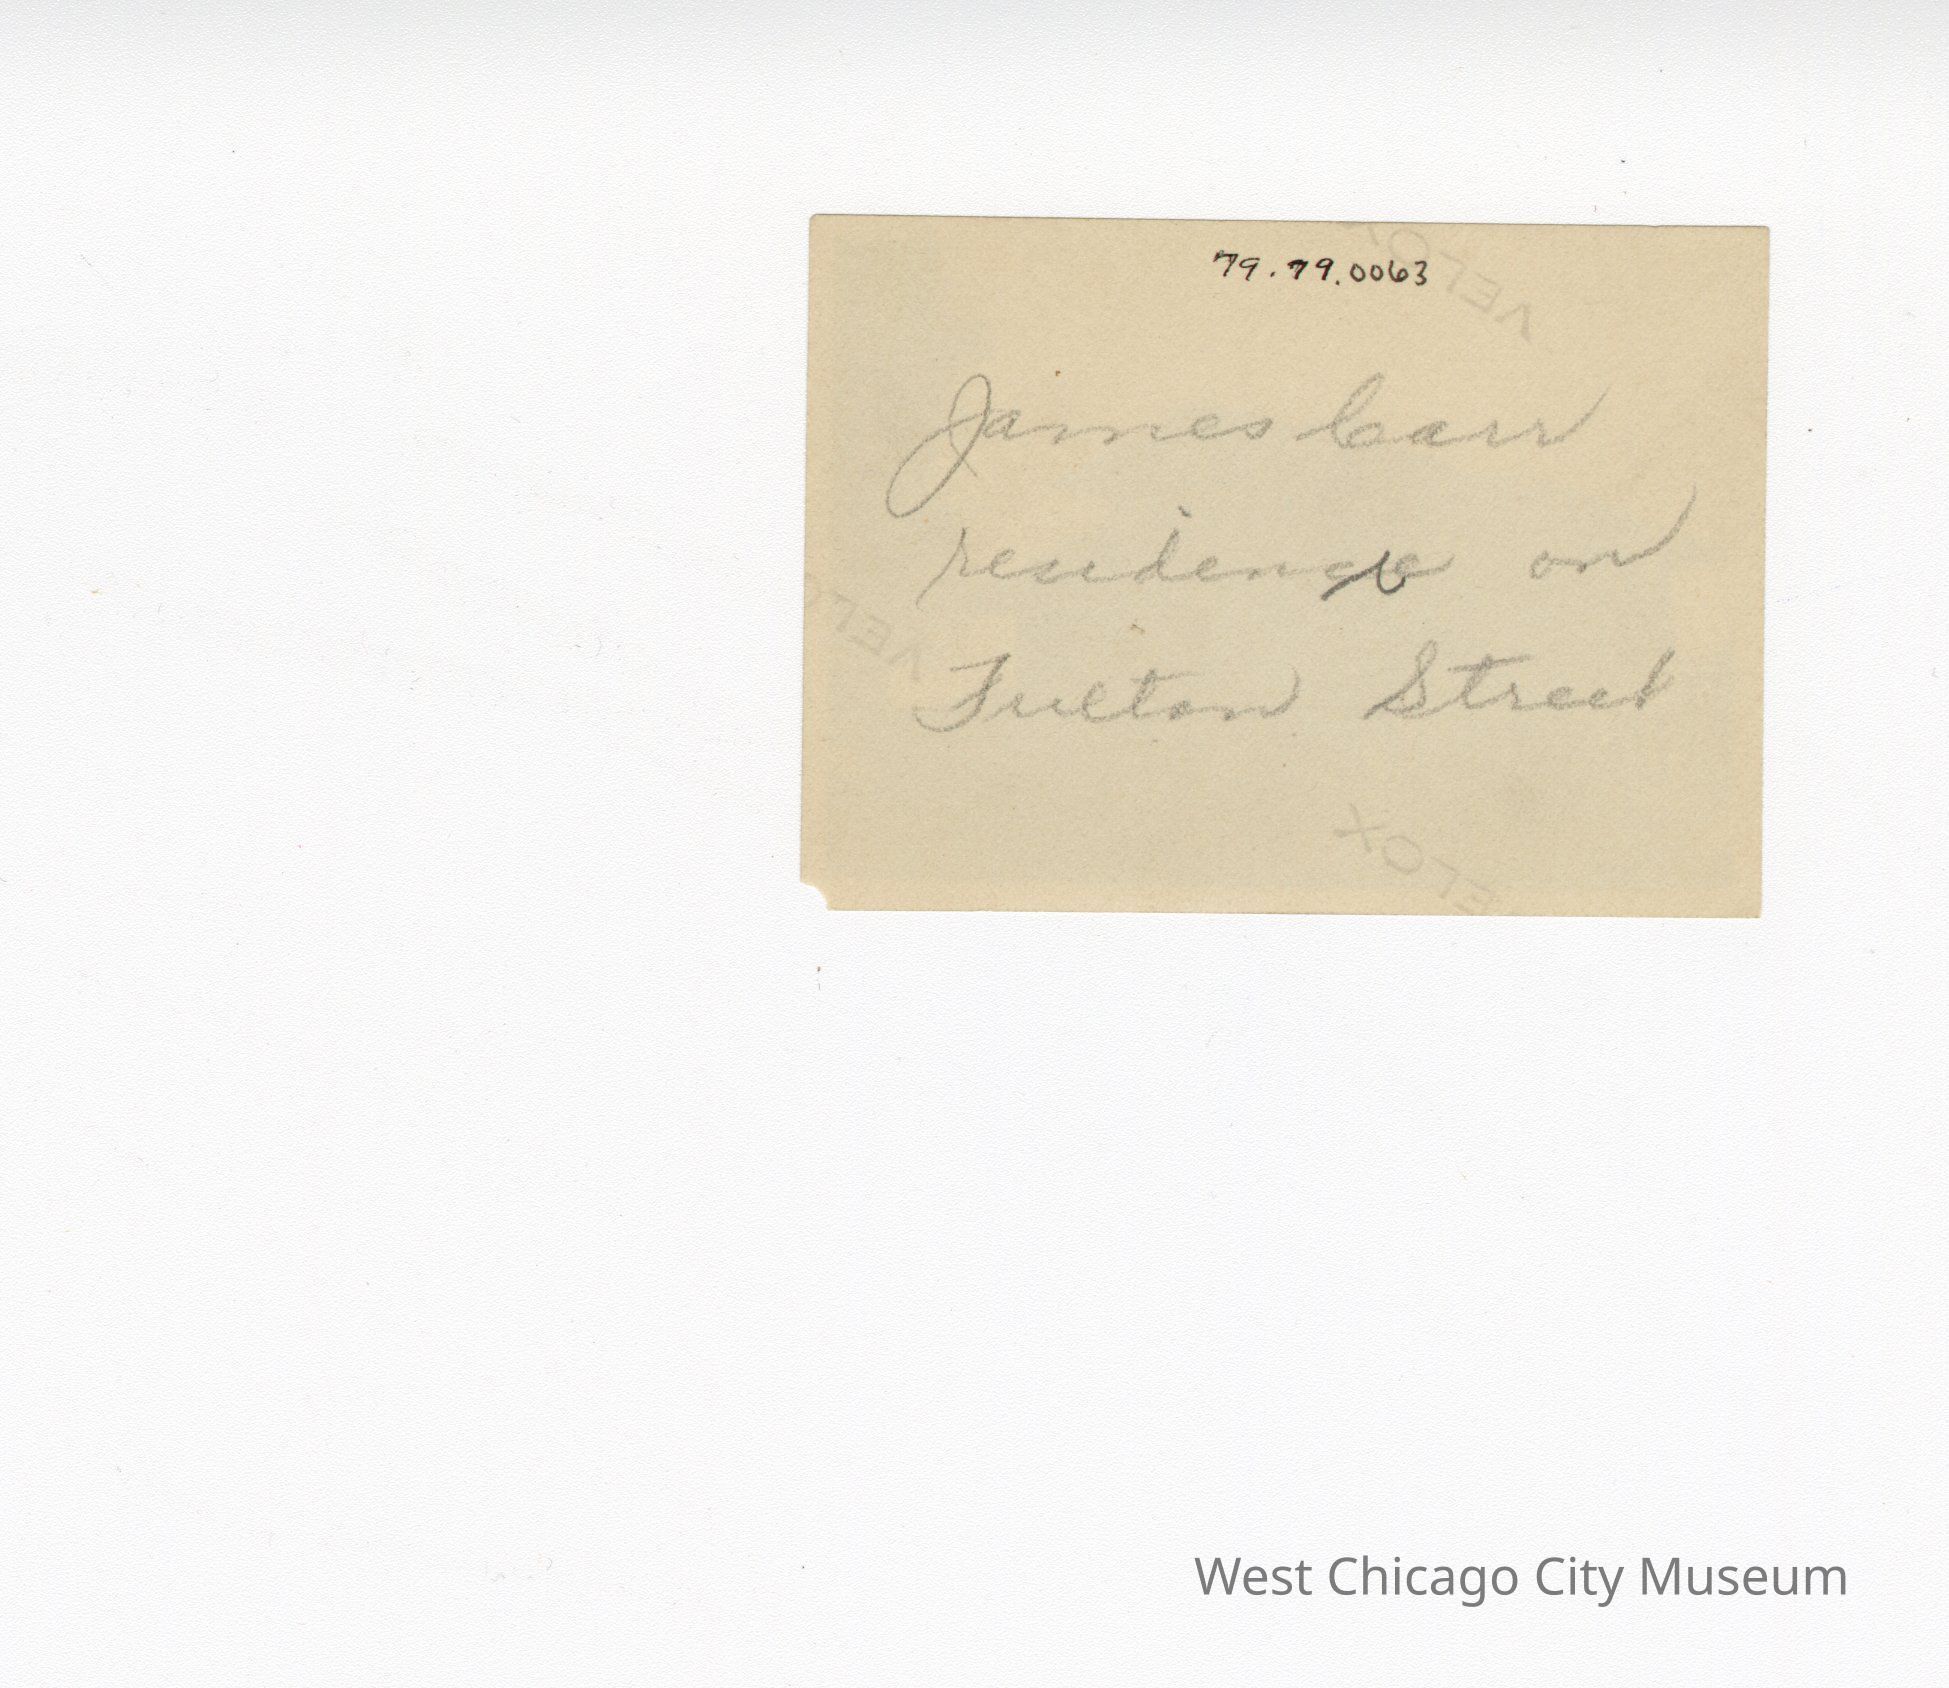 79.79.0063
VELOX
James Carr
residence on
VELO
Fulton Street
ELOX
West Chicago City Museum